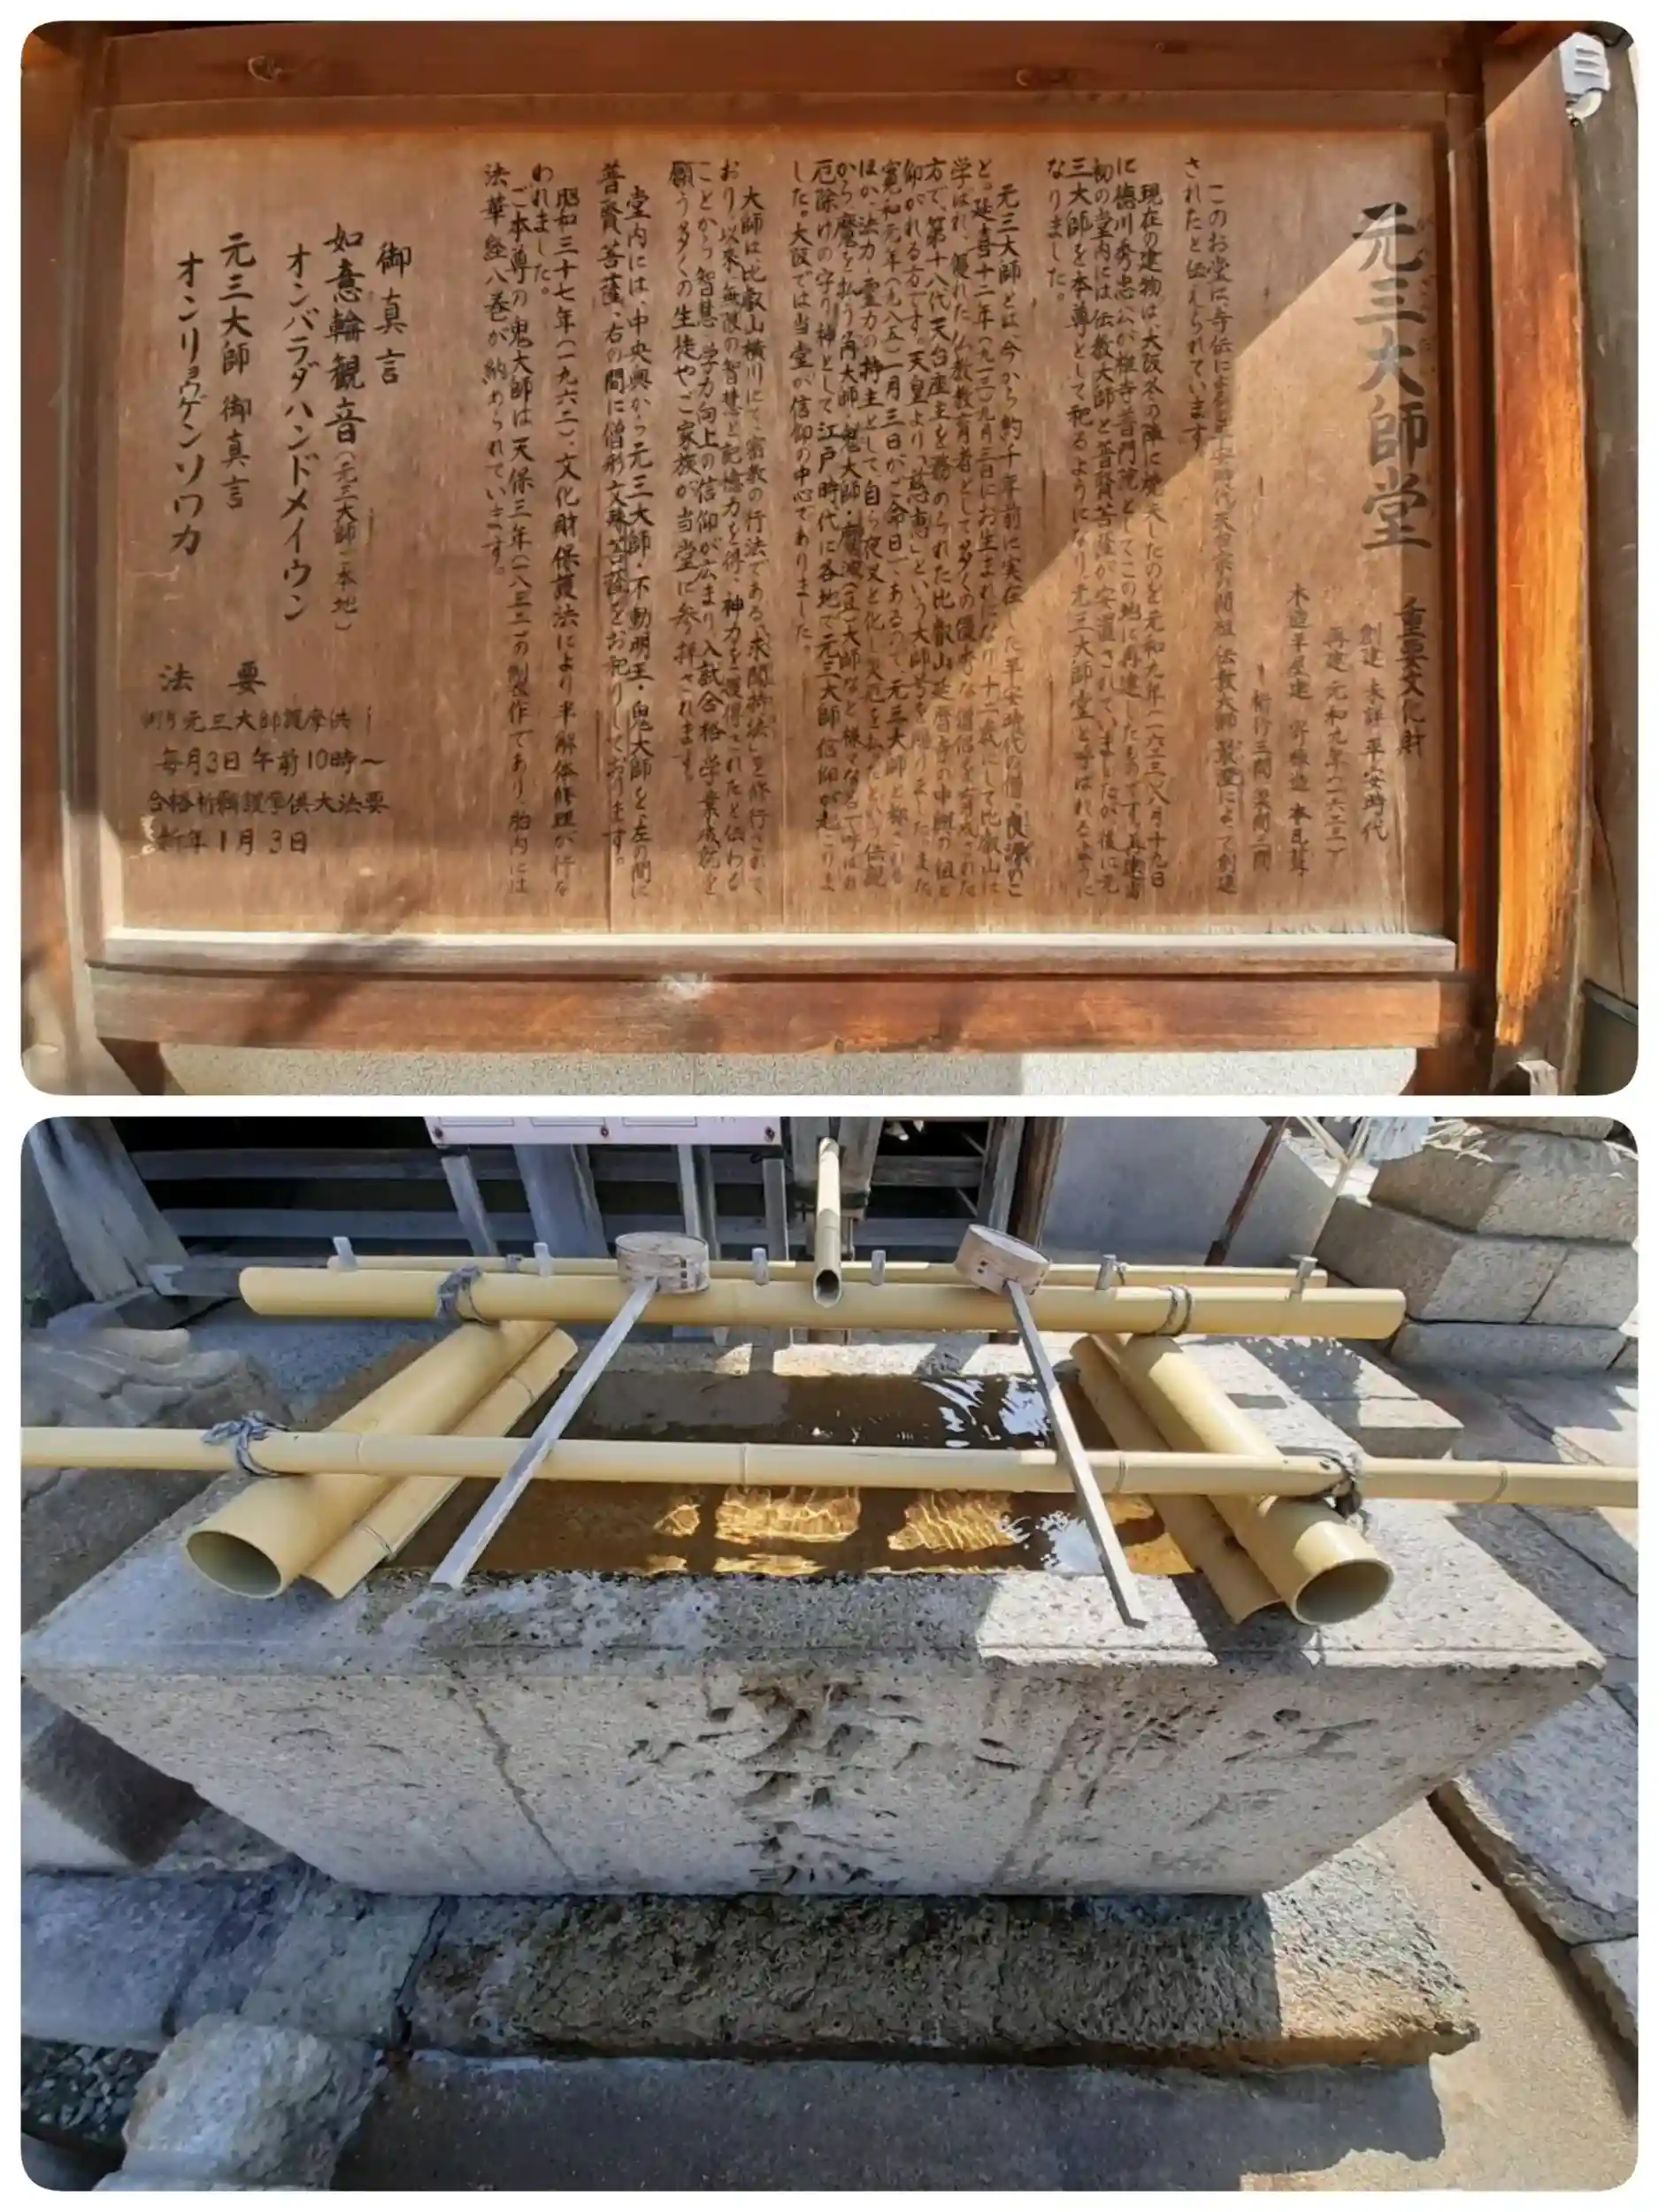 元三大師堂
重要文化財
創建 未詳 平安時代
再建 元和九年(一六二三)
木造平屋建 寄棟造 本瓦葺
桁行三間 梁間三間
このお堂は、寺伝によると平安時代、天台宗の開祖 伝教大師 最澄によって創建
されたと伝えられています。
現在の建物は、大阪冬の陣に焼失したのを元和九年(一六二三)九月十九日
に徳川秀忠公が椎寺普門院としてこの地に再建したものです。再建当
初の堂内には伝教大師と普賢菩薩が安置されていましたが後に元
三大師を本尊として祀るようになり、元三大師堂と呼ばれるように
なりました。
元三大師とは今から約千年前に実在した平安時代の僧、良源のこ
と。延喜十二年(九一二)九月三日にお生まれになり十二歳にして比叡山に
学ばれ、優れた仏教教育者として多くの優秀な僧侶を育成された
方で、第十八代天台座主を務められた比叡山延暦寺の中興の祖と
仰がれる方です。天皇より、「慈恵」という大師号を賜りました。また
寛和元年(九八五)一月三日がご命日であるので元三大師と称される
ほか、法力・霊力の持主として自ら夜叉と化し災厄を払ったという伝説
から魔を払う角大師・鬼大師・魔滅(豆)大師など様々な名で呼ばれ
厄除けの守り神として江戸時代に各地で元三大師信仰が起こりま
した。大阪では当堂が信仰の中心でありました。
大師は、比叡山横川にて、密教の行法である、「求聞持法」を修行されて
おり、以来、無限の智慧と記憶力を得、神力を獲得されたと伝わる
ことから、智慧・学力向上の信仰が広まり、入試合格・学業成就を
願う多くの生徒やご家族が当堂に参拝されます。
堂内には、中央奥から元三大師・不動明王・鬼大師を、左の間に
普賢菩薩、右の間に僧形文殊菩薩をお祀りしております。
昭和三十七年(一九六二)、文化財保護法により半解体修理が行な
われました。
ご本尊の鬼大師は天保三年(一八三二)の製作であり、胎内には
法華経八巻が納められています。
御真言
如意輪観音(元三大師ご本地)
オンバラダハンドメイウン
元三大師 御真言
オンリョウゲンソワカ
法 要
元三大師護摩供
毎月3日 午前10時〜
合格祈願護摩供大法要
新年1月3日